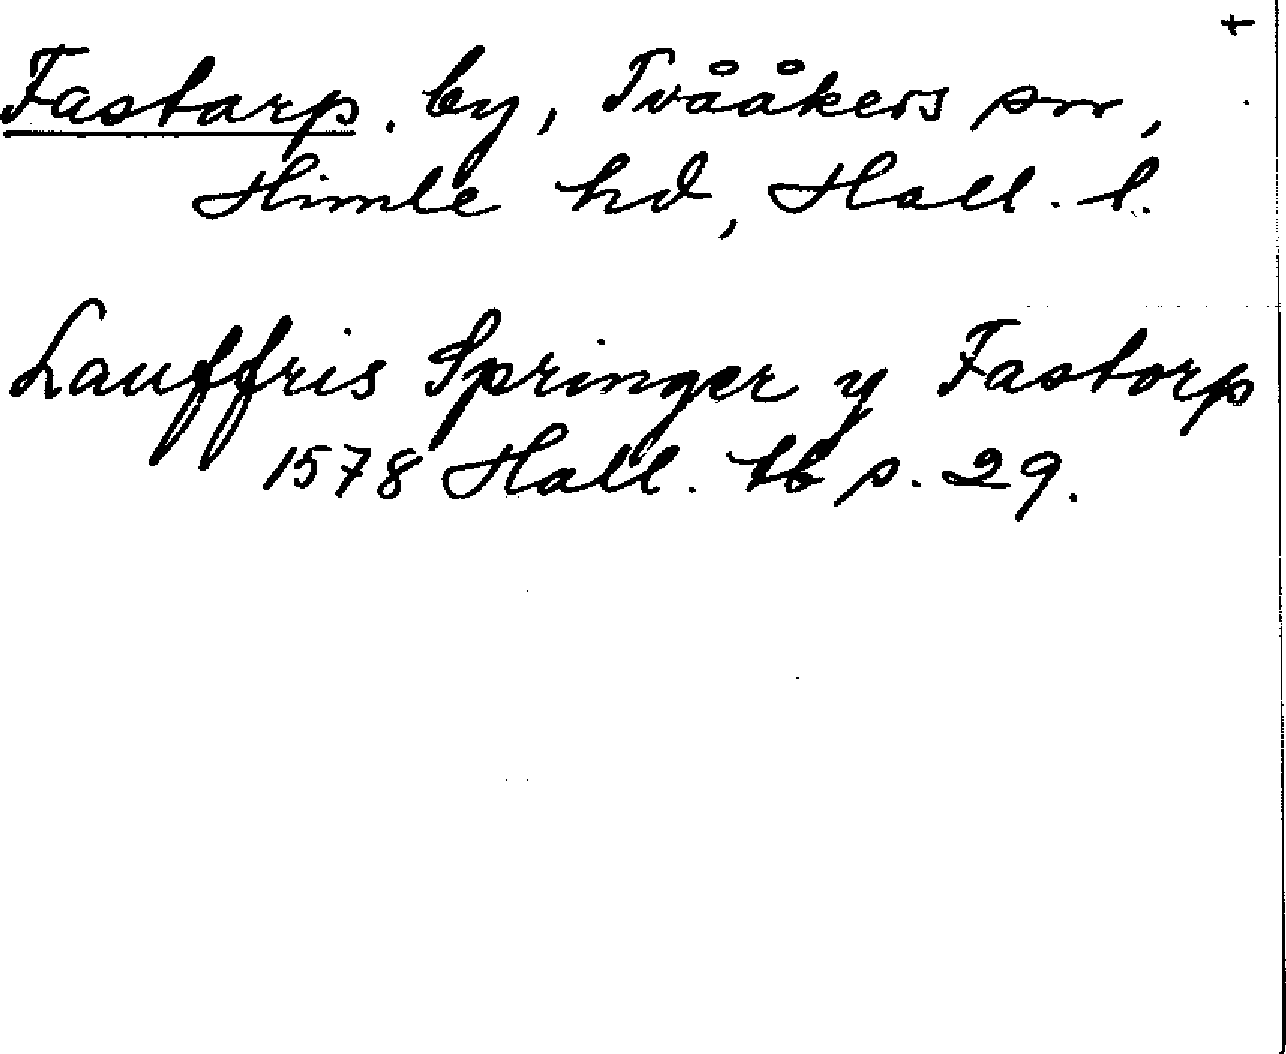 Fastarp. by, Tvååkers sn,
Himle hd, Hall. l.
Lauffris Springer y Fastorp
1578 Hall. tb s. 29.